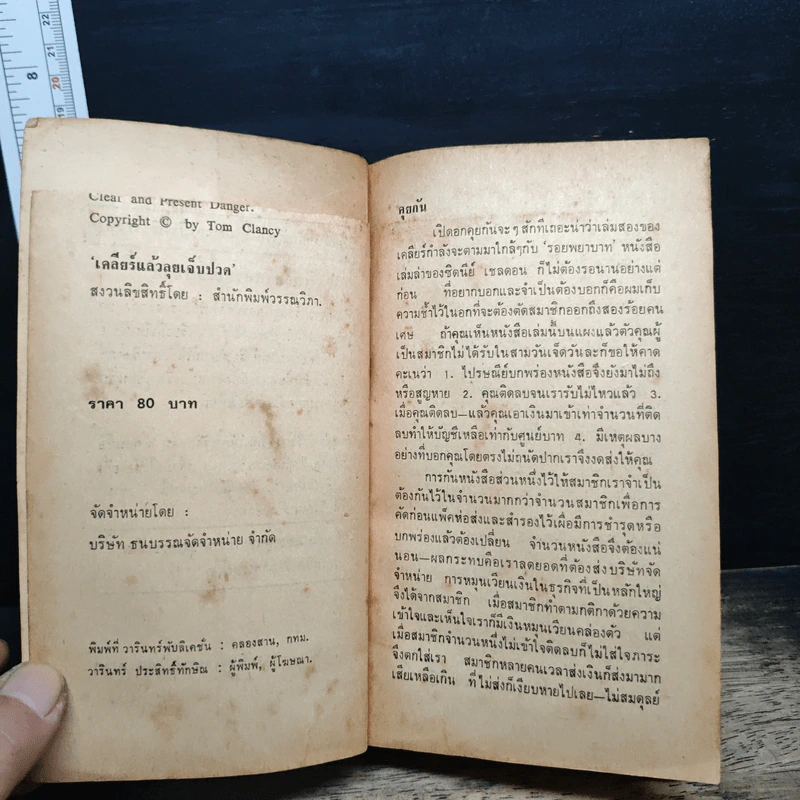 8
22
21
20
19
Clear and Present Danger.
Copyright © by Tom Clancy
'เคลียร์แล้วลุยเจ็บปวด'
สงวนลิขสิทธิ์โดย : สำนักพิมพ์วรรณวิภา.
ราคา 80 บาท
จัดจำหน่ายโดย :
บริษัท ธนบรรณจัดจำหน่าย จำกัด
พิมพ์ที่ วารินทร์พับลิเคชั่น : คลองสาน, กทม.
วารินทร์ ประสิทธิ์ทักษิณ : ผู้พิมพ์, ผู้โฆษณา.
คุยกัน
เปิดอกคุยกันจะๆ สักทีเถอะน่าว่าเล่มสองของ
เคลียร์กำลังจะตามมาใกล้ๆกับ 'รอยพยาบาท' หนังสือ
เล่มล่าของซิดนีย์ เชลดอน ก็ไม่ต้องรอนานอย่างแต่
ก่อน ที่อยากบอกและจำเป็นต้องบอกก็คือผมเก็บ
ความช้ำไว้ในอกที่จะต้องตัดสมาชิกออกถึงสองร้อยคน
เศษ ถ้าคุณเห็นหนังสือเล่มนี้บนแผงแล้วตัวคุณผู้
เป็นสมาชิกไม่ได้รับในสามวันเจ็ดวันละก็ขอให้คาด
คะเนว่า 1. ไปรษณีย์บกพร่องหนังสือจึงยังมาไม่ถึง
หรือสูญหาย 2. คุณติดลบจนเรารับไม่ไหวแล้ว 3.
เมื่อคุณติดลบ—แล้วคุณเอาเงินมาเข้าเท่าจำนวนที่ติด
ลบทำให้บัญชีเหลือเท่ากับศูนย์บาท 4. มีเหตุผลบาง
อย่างที่บอกคุณโดยตรงไม่ถนัดปากเราจึงงดส่งให้คุณ
การกันหนังสือส่วนหนึ่งไว้ให้สมาชิกเราจำเป็น
ต้องกันไว้ในจำนวนมากกว่าจำนวนสมาชิกเพื่อการ
คัดก่อนแพ็คห่อส่งและสำรองไว้เผื่อมีการชำรุดหรือ
บกพร่องแล้วต้องเปลี่ยน จำนวนหนังสือจึงต้องแน่
นอน—ผลกระทบคือเราลดยอดที่ต้องส่งบริษัทจัด
จำหน่าย การหมุนเวียนเงินในธุรกิจที่เป็นหลักใหญ่
จึงได้จากสมาชิก เมื่อสมาชิกทำตามกติกาด้วยความ
เข้าใจและเห็นใจเราก็มีเงินหมุนเวียนคล่องตัว แต่
เมื่อสมาชิกจำนวนหนึ่งไม่เข้าใจติดลบก็ไม่ใส่ใจภาระ
จึงตกใส่เรา สมาชิกหลายคนเวลาส่งเงินก็ส่งมามาก
เสียเหลือเกิน ที่ไม่ส่งก็เงียบหายไปเลย—ไม่สมดุลย์